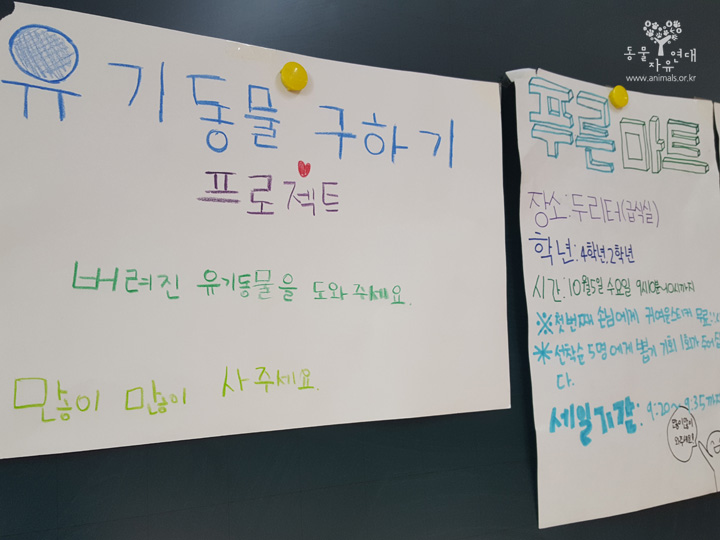 유기동물 구하기
프로젝트
버려진 유기동물을 도와주세요.
많이 많이 사주세요.
푸른마트
장소:두리터(급식실)
학년:4학년,2학년
시간:10월5일 수요일 9시10분~10시까지
※첫번째 손님에게 귀여운스티커 무료
※선착순 5명에게 뽑기 기회 1회가 주어집
다.
세일기간: 9:20~9:35까지
많이많이
동물
자유연대
www.animals.or.kr